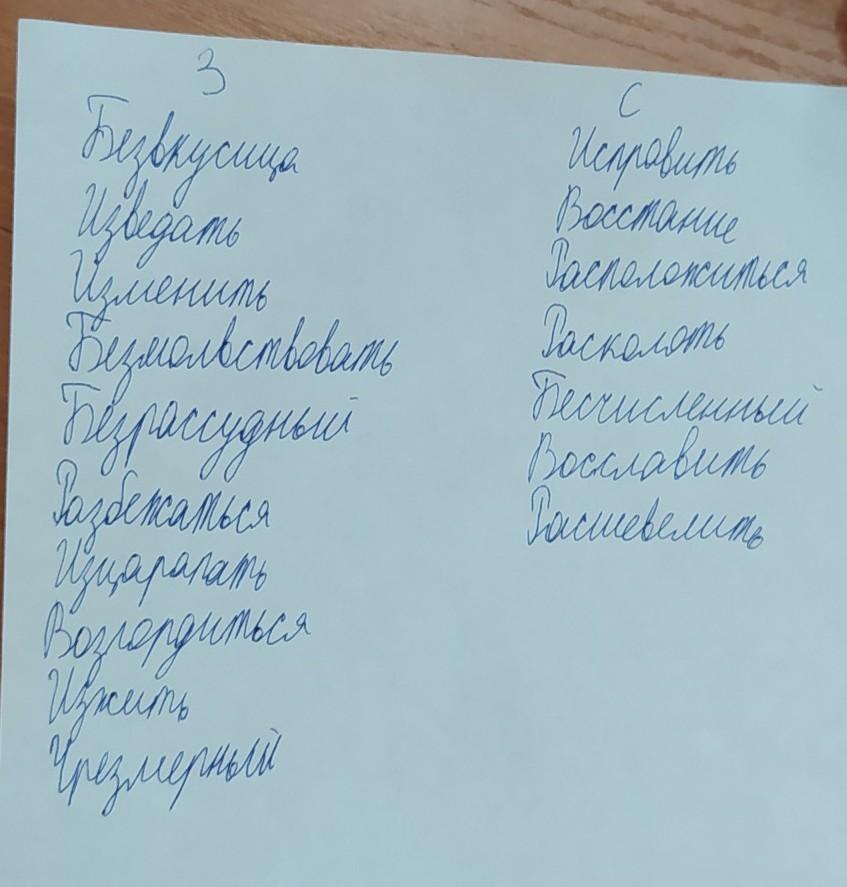 З
Безвкусица
Изведать
Изменить
Безмольствовать
Безрассудный
Разбежаться
Изцарапать
Возгордиться
Изжить
Чрезмерный
С
Исправить
Восстание
Расположиться
Расколоть
Бесчисленный
Восславить
Расшевелить